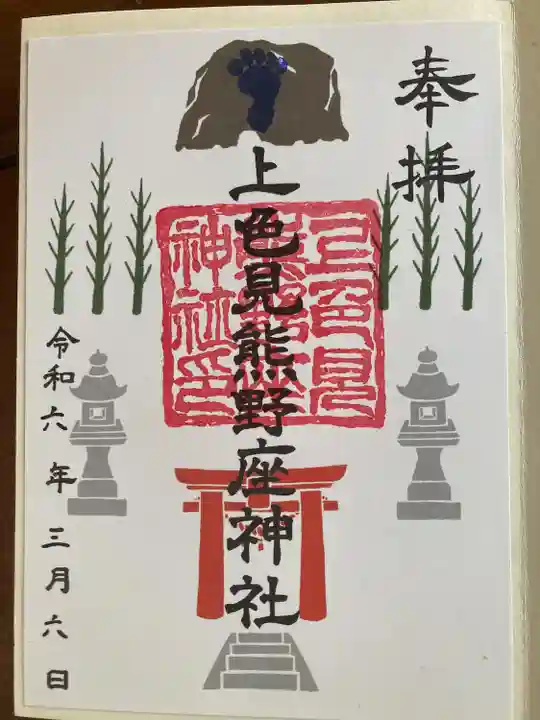 奉拝
上色見熊野座神社
上色見
熊野座
神社印
令和六年三月六日